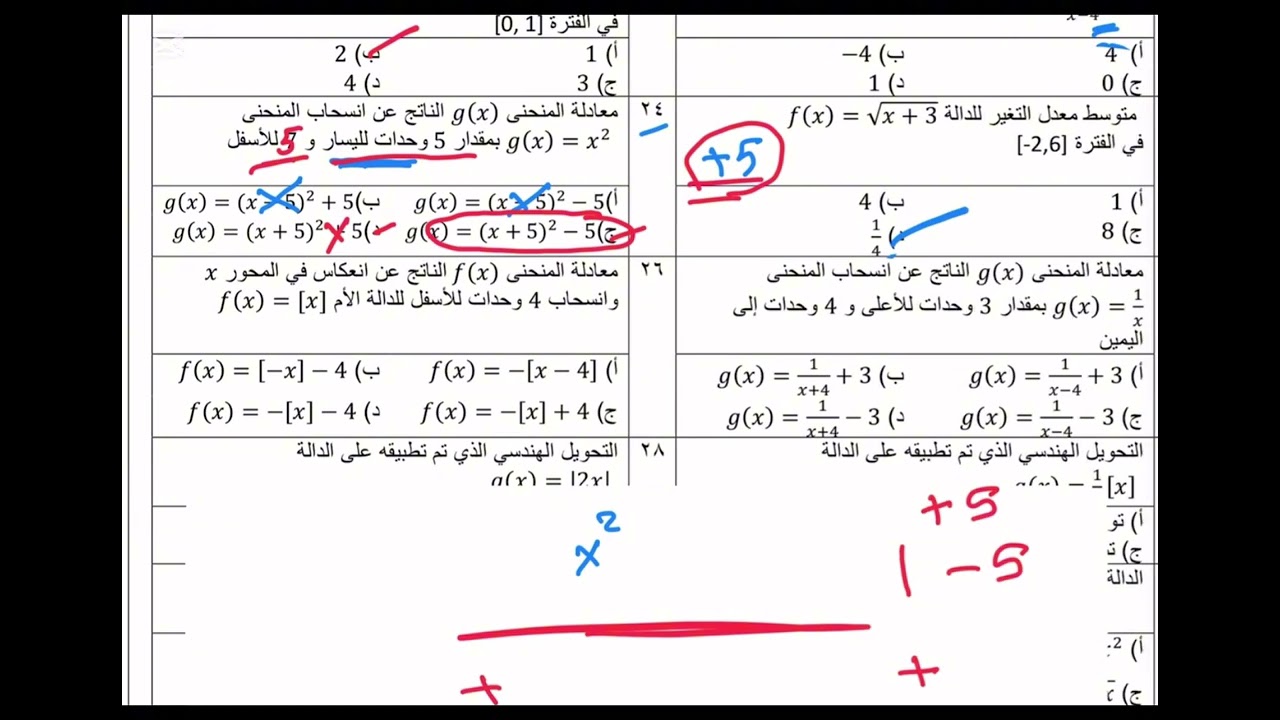 x−4
أ) 4 ب) −4
ج) 0 د) 1
متوسط معدل التغير للدالة f(x) = √x + 3
في الفترة [-2,6]
+5
أ) 1 ب) 4
ج) 8 د) 1/4
معادلة المنحنى g(x) الناتج عن انسحاب المنحنى
g(x) = 1/x بمقدار 3 وحدات للأعلى و 4 وحدات إلى
اليمين
أ) g(x) = 1/(x−4) + 3 ب) g(x) = 1/(x+4) + 3
ج) g(x) = 1/(x−4) − 3 د) g(x) = 1/(x+4) − 3
التحويل الهندسي الذي تم تطبيقه على الدالة
[x]
أ) تو
ج) ت
الدالة
أ)
ج)
في الفترة [0, 1]
أ) 1 ب) 2
ج) 3 د) 4
٢٤
معادلة المنحنى g(x) الناتج عن انسحاب المنحنى
g(x) = x² بمقدار 5 وحدات لليسار و 7 للأسفل
5
أ) g(x) = (x − 5)² − 5 ب) g(x) = (x − 5)² + 5
ج) g(x) = (x + 5)² − 5 د) g(x) = (x + 5)² + 5
٢٦
معادلة المنحنى f(x) الناتج عن انعكاس في المحور x
وانسحاب 4 وحدات للأسفل للدالة الأم f(x) = [x]
أ) f(x) = −[x − 4] ب) f(x) = [−x] − 4
ج) f(x) = −[x] + 4 د) f(x) = −[x] − 4
٢٨
التحويل الهندسي الذي تم تطبيقه على الدالة
g(x) = |2x|
x²
+5
| −5
+ +